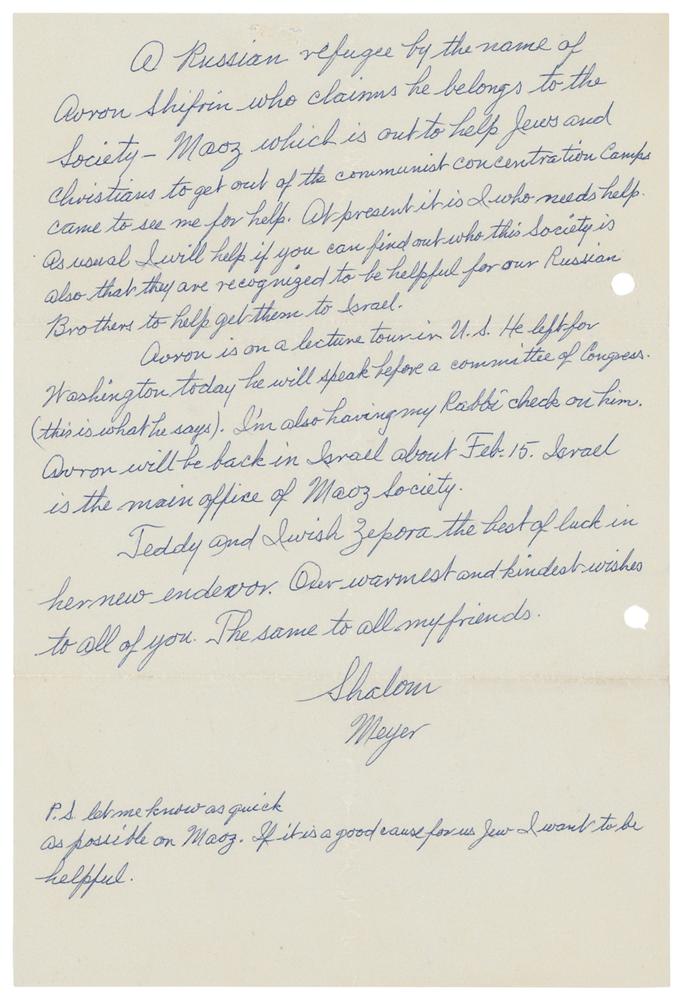 A Russian refugee by the name of
Avron Shifrin who claims he belongs to the
Society - Maoz which is out to help Jews and
Christians to get out of the communist concentration Camps
came to see me for help. At present it is I who needs help.
As usual I will help if you can find out who this Society is
also that they are recognized to be helpful for our Russian
Brothers to help get them to Israel.
Avron is on a lecture tour in U.S. He left for
Washington today he will speak before a committee of Congress.
(this is what he says). I'm also having my Rabbi check on him.
Avron will be back in Israel about Feb. 15. Israel
is the main office of Maoz Society.
Teddy and I wish Zepora the best of luck in
her new endevor. Our warmest and kindest wishes
to all of you. The same to all my friends.
Shalom
Meyer
P.S. let me know as quick
as possible on Maoz. If it is a good cause for us Jew I want to be
helpful.